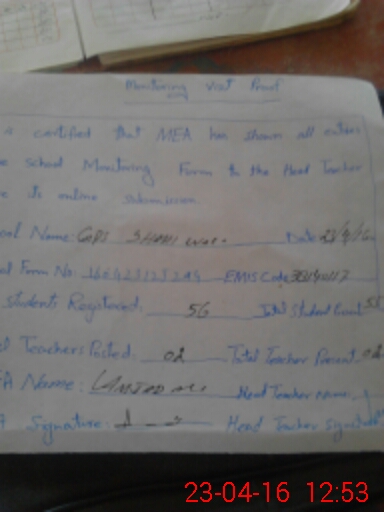 Monitoring Visit Proof
is certified that MEA has shown all entries
school Monitoring Form to the Head Teacher
its online submission
Name: GPS Date: 23/4/16
Form No: EMIS Code
Students Registered: 56 Total Student Count
Teachers Posted: 02 Total Teacher Present 02
Name: Head Teacher name
Signature: Head Teacher signature
23-04-16 12:53